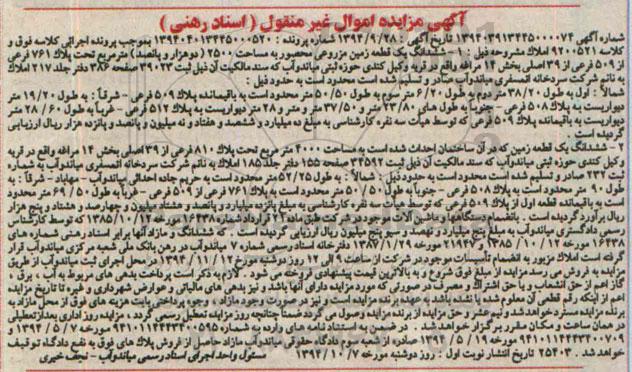 آگهی مزایده اموال غیر منقول ( اسناد رهنی )
شماره آگهی ۱۳۹۴۰۳۹۱۳۴۴۵۰۰۰۰۷۴ تاریخ آگهی : ۱۳۹۴/۹/۲۸ شماره پرونده : ۱۳۹۴۰۴۰۱۳۴۴۵۰۰۰۵۲۰ بموجب پرونده اجرائی کلاسه فوق و
کلاسه ۹۲۰۰۵۲۱ املاک مشروحه ذیل : ۱ - ششدانگ یک قطعه زمین مزروعی محصور به مساحت ۲۵۰۰ ( دوهزار و پانصد ) مترمربع تحت پلاک ۷۶۱ فرعی
از ۵۰۹ فرعی از ۳۹ اصلی بخش ۱۴ مراغه واقع در قریه وکیل کندی حوزه ثبتی میاندوآب که سند مالکیت آن ذیل ثبت ۳۹۰۲۳ صفحه ۳۸۶ دفتر جلد ۲۱۷ املاک
به نام شرکت سردخانه اتمسفری میاندوآب صادر و تسلیم شده است محدود است به حدود ذیل :
شمالاً : اول به طول ۳۸/۲۰ متر دوم به طول ۶/۲۰ متر سوم به طول ۵۰/۵۰ متر محدود است به باقیمانده پلاک ۵۰۹ فرعی - شرقاً : به طول ۱۹/۲۰ متر
دیواریست به پلاک ۵۰۸ فرعی - جنوباً به طول های ۲۳/۸۰ متر و ۳۷/۵۰ متر و ۲۸ متر دیواریست به پلاک ۵۱۲ فرعی - غرباً به طول ۲۸/۶۰ متر
دیواریست به باقیمانده پلاک ۵۰۹ فرعی که توسط هیأت سه نفره کارشناسی به مبلغ ده میلیارد و ششصد و هفتاد و نه میلیون و پانصد و پانزده هزار ریال ارزیابی
گردیده است .
۲ - ششدانگ یک قطعه زمین که در آن ساختمان احداث شده است به مساحت ۴۰۰۰ متر مربع تحت پلاک ۸۱۰ فرعی از ۳۹ اصلی بخش ۱۴ مراغه واقع در قریه
وکیل کندی حوزه ثبتی میاندوآب که سند مالکیت آن ذیل ثبت ۳۴۵۹۲ صفحه ۱۵۵ دفتر جلد ۱۸۵ املاک به نام شرکت سردخانه اتمسفری میاندوآب به شماره
ثبت ۲۳۲ صادر و تسلیم شده است محدود است به حدود ذیل : شمالاً : به طول ۵۲/۲۵ متر محدود است به حریم جاده احداثی میاندوآب - مهاباد - شرقاً : به
طول ۹۰ متر محدود است به پلاک ۵۰۸ فرعی - جنوباً به طول ۵۰/۵۰ متر محدود است به پلاک ۷۶۱ فرعی از ۵۰۹ فرعی - غرباً به طول ۶۹/۵۰ متر محدود
است به باقیمانده قطعه اول از پلاک ۵۰۹ فرعی که توسط هیأت سه نفره کارشناسی به مبلغ پانزده میلیارد و پانصد و هشتاد میلیون و چهارصد و هشتاد و پنج هزار
ریال برآورد گردیده است . بانضمام دستگاهها و ماشین آلات موجود در شرکت طبق ماده ۲۱ قرارداد شماره ۱۶۴۳۸ مورخه ۱۳۸۵/۱۰/۱۲ که توسط کارشناس
رسمی دادگستری میاندوآب به مبلغ پنج میلیارد و نهصد و سی و پنج میلیون ریال ارزیابی گردیده است . که ششدانگ و مازاد آنها برابر اسناد رهنی شماره های
۱۶۴۳۸ مورخه ۱۳۸۵/۱۰/۱۲ و ۲۱۹۴۷ مورخه ۱۳۸۷/۱/۲۹ دفترخانه اسناد رسمی شماره ۷ میاندوآب در رهن بانک ملی شعبه مرکزی میاندوآب قرار
گرفته است املاک مزبور به انضمام تأسیسات موجود در شرکت از ساعت ۹ الی ۱۲ روز دوشنبه مورخ ۱۳۹۴/۱۱/۱۲ در محل اجرای ثبت میاندوآب از طریق
مزایده به فروش می رسد مزایده از مبلغ فوق شروع و به بالاترین قیمت پیشنهادی فروخته می شود . لازم به ذکر است پرداخت بدهی های مربوطه به آب ، برق ،
گاز اعم از حق انشعاب و یا حق اشتراک و مصرف در صورتی که مورد مزایده دارای آنها باشد و نیز بدهی های مالیاتی و عوارض شهرداری و غیره تا تاریخ مزایده
اعم از اینکه رقم قطعی آن معلوم شده یا نشده باشد به عهده برنده مزایده است و نیز در صورت وجود مازاد ، وجوه پرداختی بابت هزینه های فوق از محل مازاد به
برنده مزایده مسترد خواهد شد و نیم عشر و حق مزایده از برنده مزایده وصول می گردد ضمناً چنانچه روز مزایده تعطیل رسمی گردد ، مزایده روز اداری بعد از تعطیلی
در همان ساعت و مکان مقرر برگزار خواهد شد . در ضمن به استناد نامه های وارده به شماره ۹۴۱۰۱۱۴۴۴۳۴۰۰۵۹۵ مورخه ۱۳۹۴/۵/۷ و
۹۴۱۰۱۱۴۴۴۳۴۰۰۷۰۹ مورخه ۱۳۹۴/۵/۱۹ صادره از شعبه سوم دادگاه حقوقی میاندوآب مازاد حاصل از فروش پلاک های فوق به نفع دادگاه توقیف
خواهد شد . ۲۵۴۰۳ تاریخ انتشار نوبت اول : روز دوشنبه مورخه ۱۳۹۴/۱۰/۷ مسئول واحد اجرای اسناد رسمی میاندوآب - نجف خیری